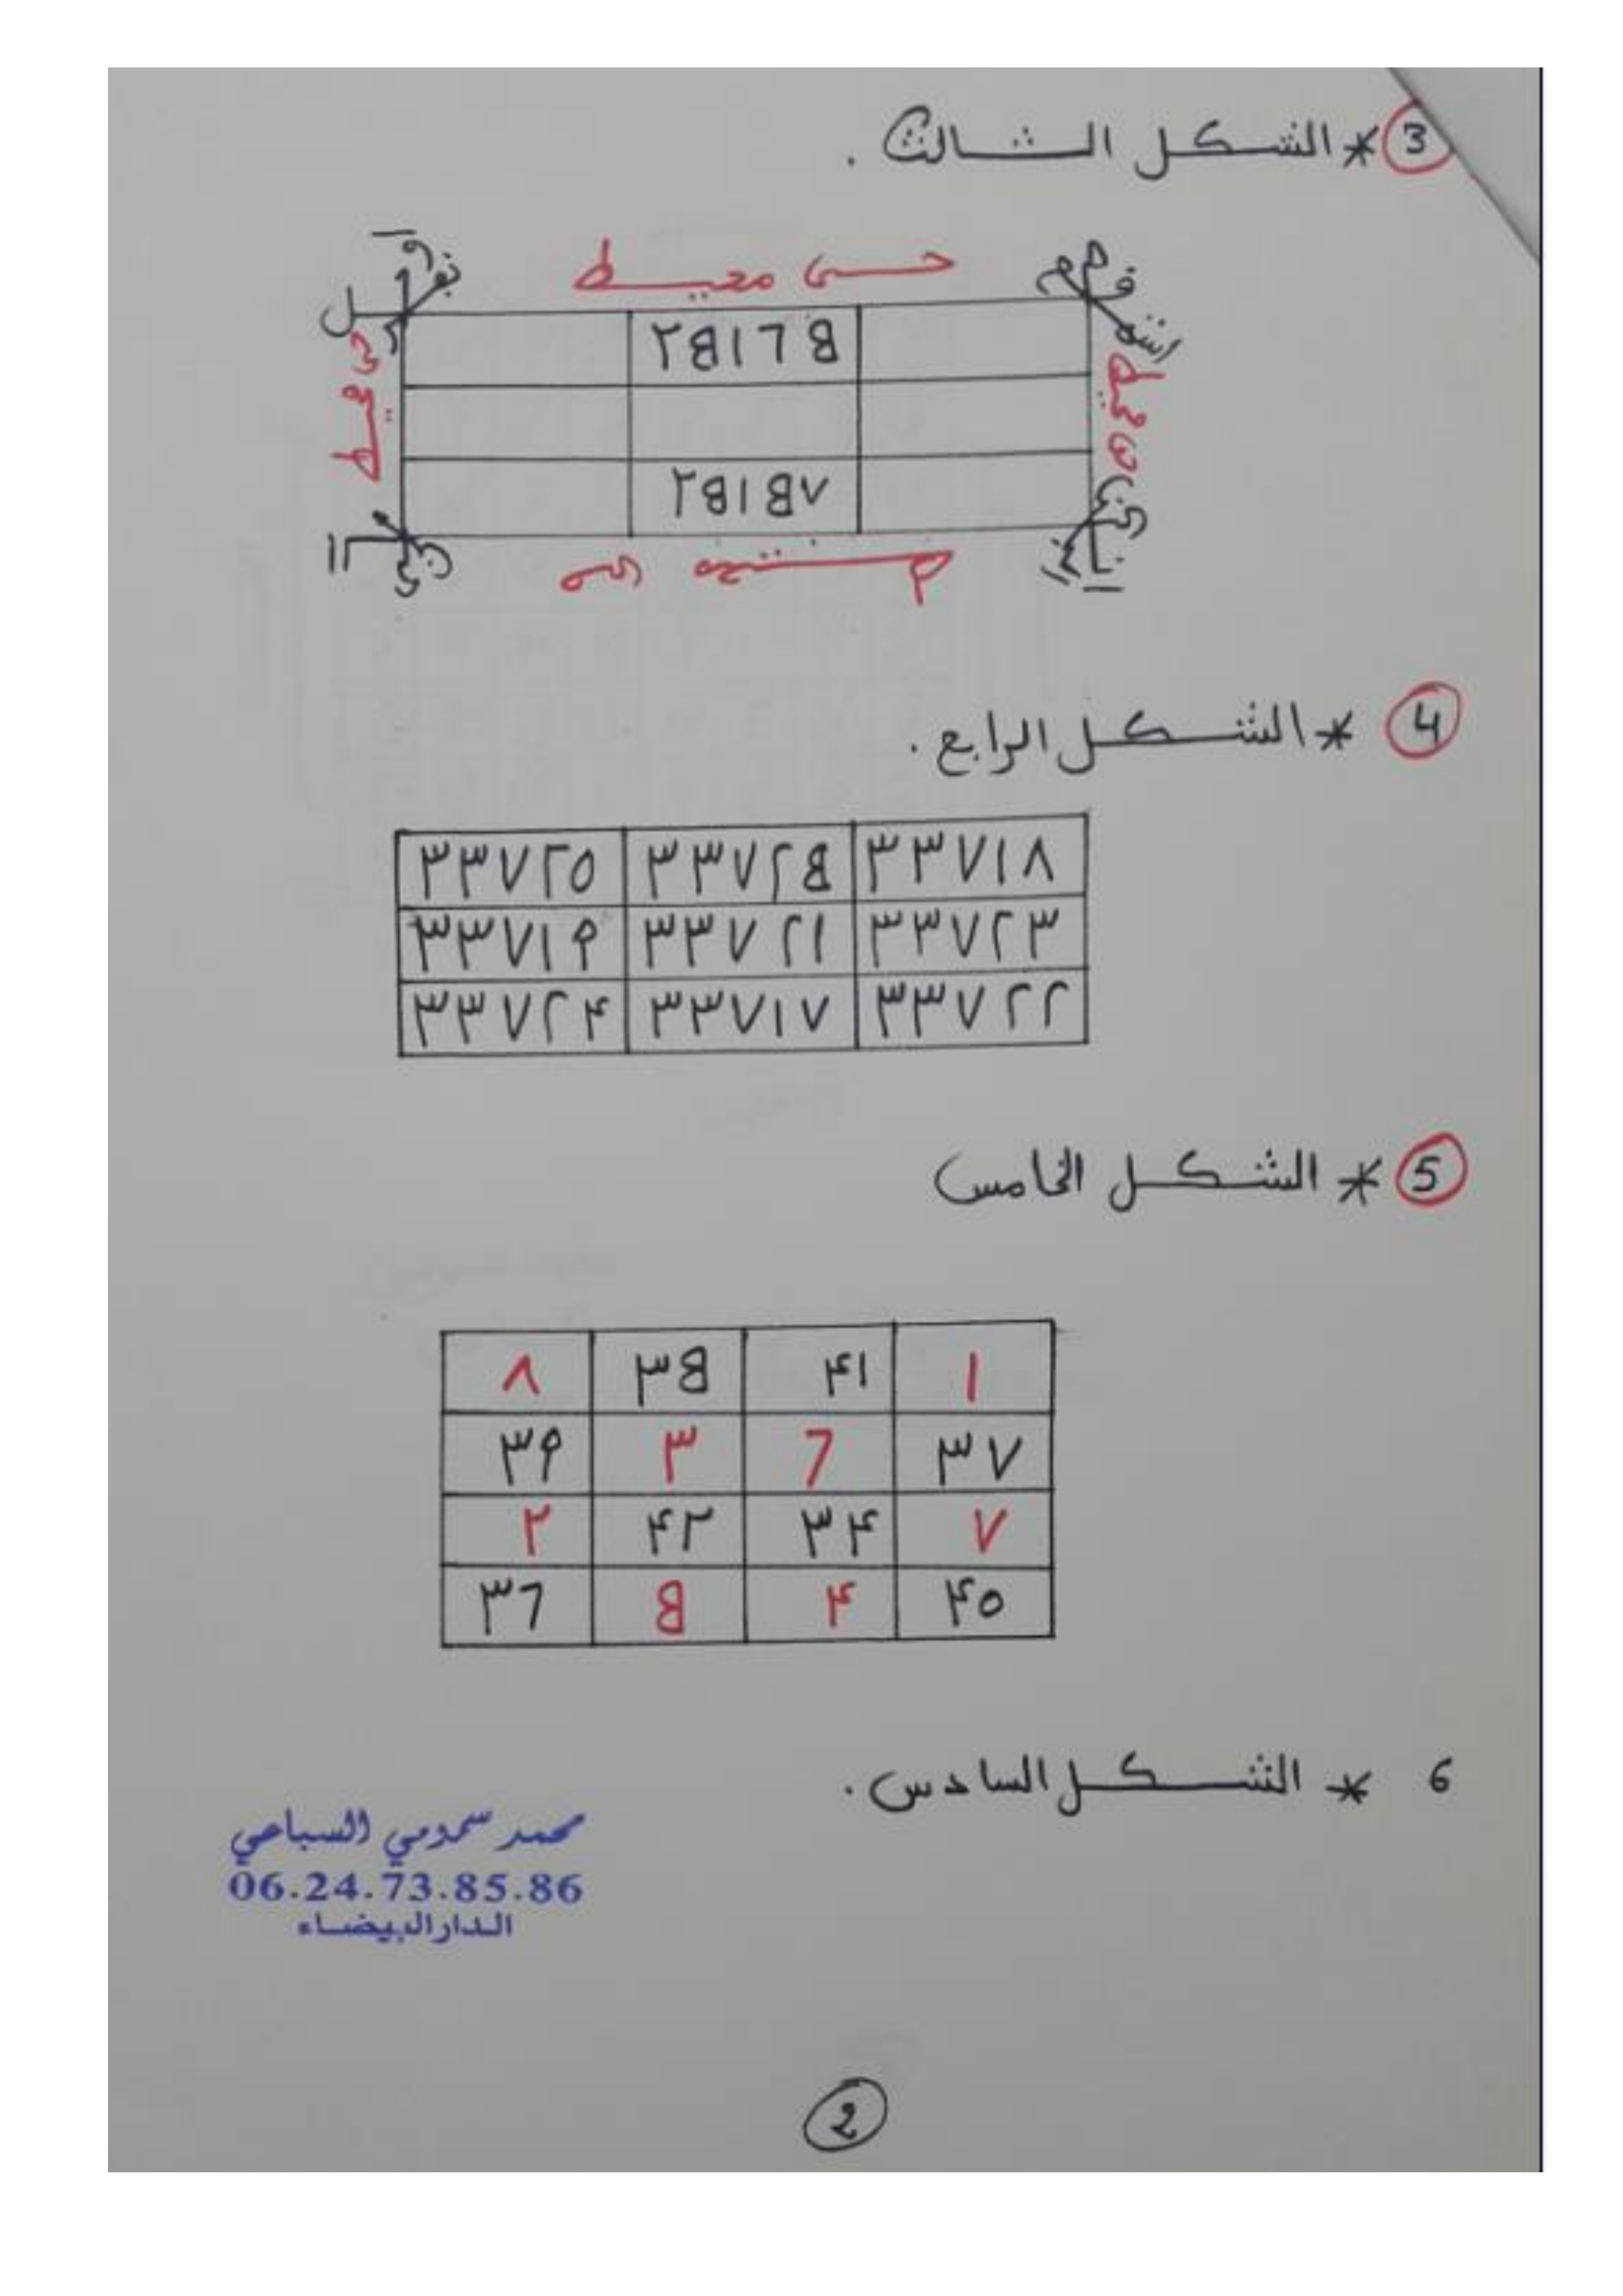 3 * الشكل الثالث .
حسى محيط
٢B١٦B
٢B١B٧
4 * الشكل الرابع .
٣٣٧٢٥ ٣٣٧٢B ٣٣٧١٨
٣٣٧١٩ ٣٣٧٢١ ٣٣٧٢٣
٣٣٧٢۴ ٣٣٧١٧ ٣٣٧٢٢
5 * الشكل الخامس
٨ ٣B ۴١ ١
٣٩ ٣ ٦ ٣٧
٢ ۴٢ ٣۴ ٧
٣٦ B ۴ ۴٥
6 * الشكل السادس .
محمد سمومي السباعي
06.24.73.85.86
الدارالبيضاء
2